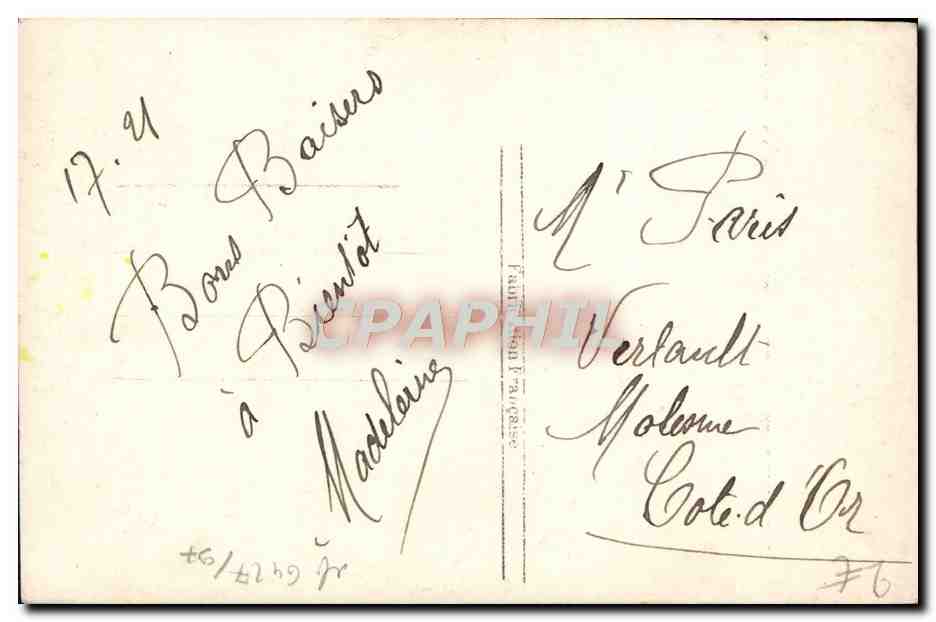 17. 21
Bons Baisers
à Bientôt
Madeleine
Fabrication Française
Mr Paris
Vertault
Molesme
Cote-d'Or
CPAPHIL
6427/97
76